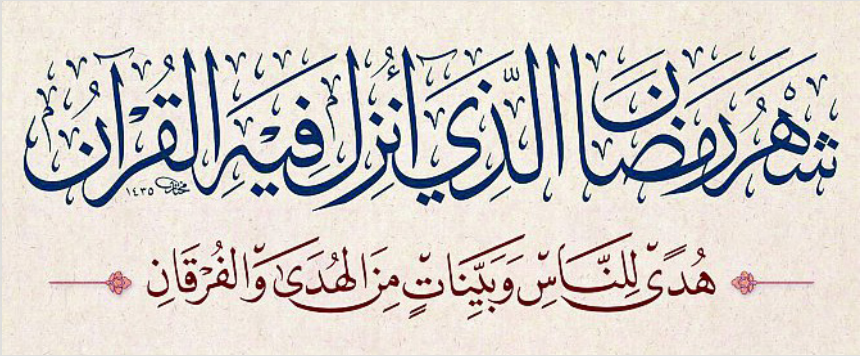 شَهْرُ رَمَضَانَ الَّذِي أُنْزِلَ فِيهِ الْقُرْآنُ
مختار ١٤٣٥
هُدًى لِلنَّاسِ وَبَيِّنَاتٍ مِنَ الْهُدَى وَالْفُرْقَانِ